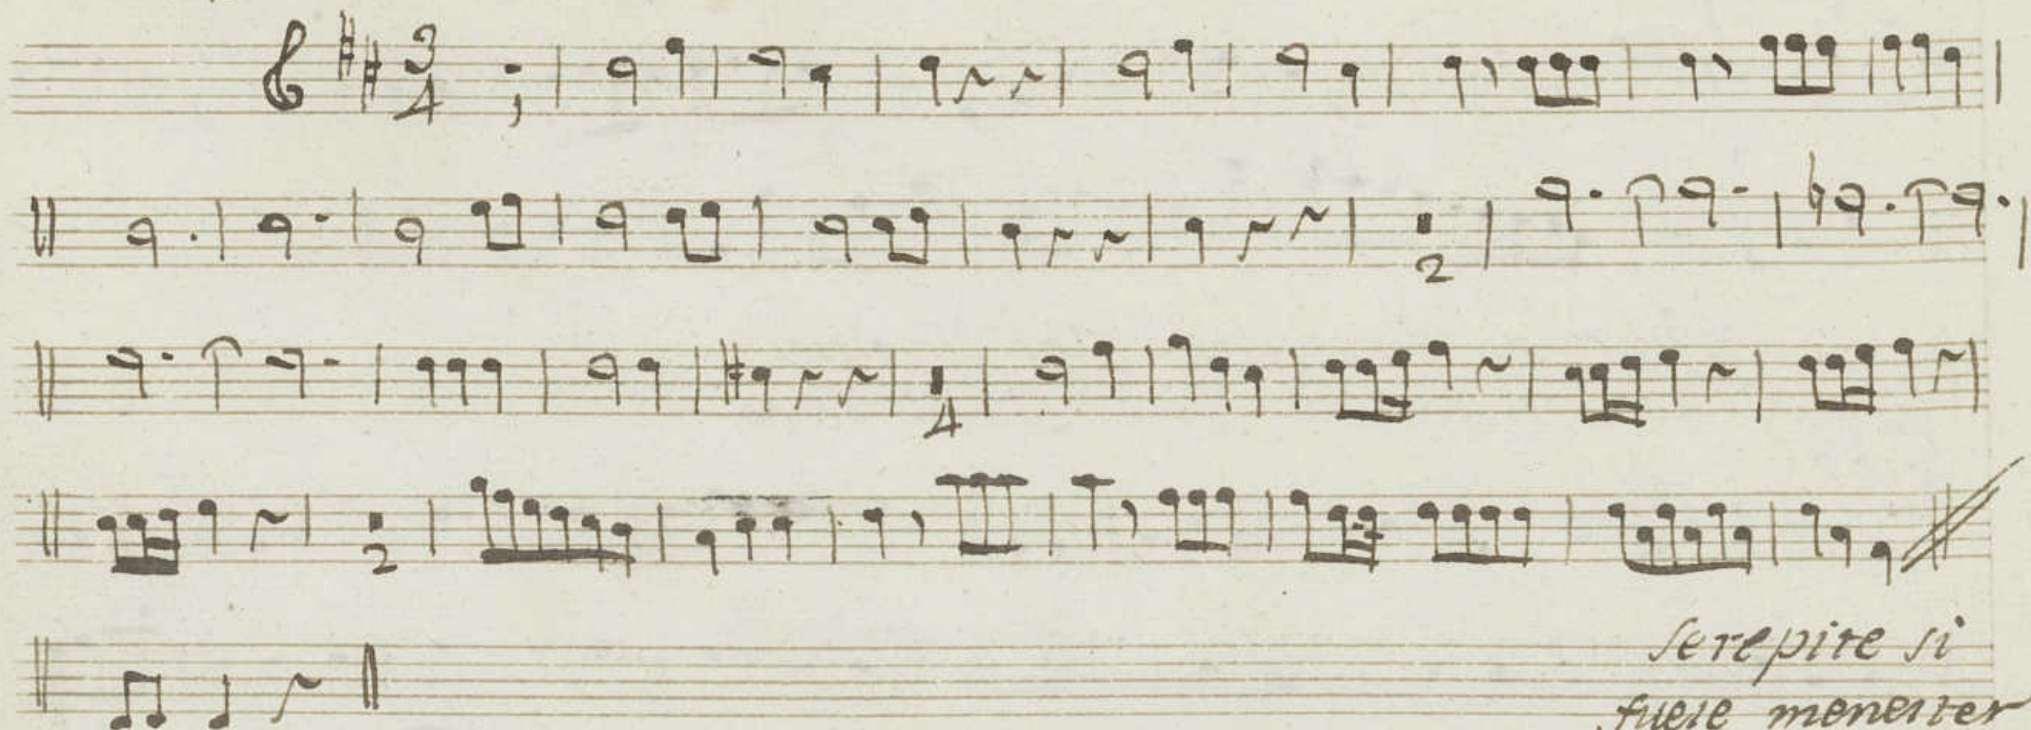 3
4
1
2
4
2
Se repite si
fuese menester